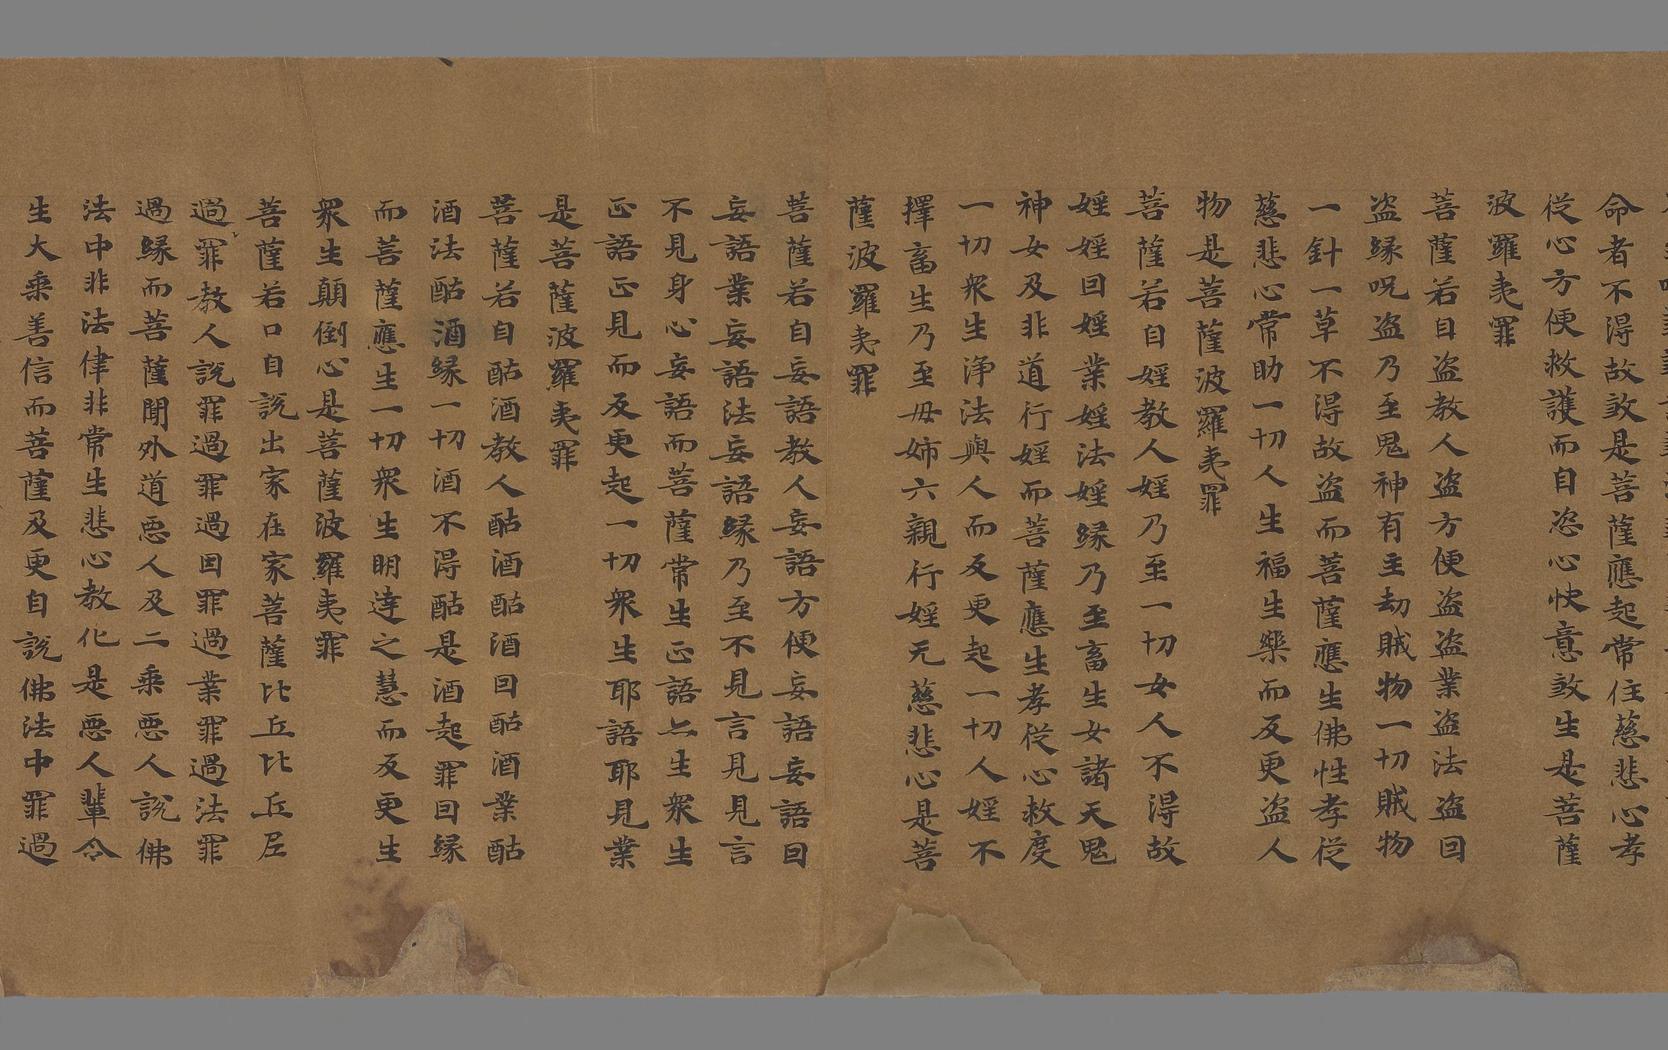 命者不得故敓是菩薩應起常住慈悲心孝
從心方便救護而自恣心快意敓生是菩薩
波羅夷罪
菩薩若自盗教人盗方便盗盗業盗法盗因
盗緣呪盗乃至鬼神有主劫賊物一切賊物
一針一草不得故盗而菩薩應生佛性孝從
慈悲心常助一切人生福生樂而反更盗人
物是菩薩波羅夷罪
菩薩若自婬教人婬乃至一切女人不淂故
婬婬因婬業婬法婬緣乃至畜生女諸天鬼
神女及非道行婬而菩薩應生孝從心救度
一切衆生淨法與人而反更起一切人婬不
擇畜生乃至母姉六親行婬无慈悲心是菩
薩波羅夷罪
菩薩若自妄語教人妄語方便妄語妄語因
妄語業妄語法妄語緣乃至不見言見見言
不見身心妄語而菩薩常生正語亦生衆生
正語正見而反更起一切衆生耶語耶見業
是菩薩波羅夷罪
菩薩若自酤酒教人酤酒酤酒因酤酒業酤
酒法酤酒緣一切酒不淂酤是酒起罪因緣
而菩薩應生一切衆生明達之慧而反更生
衆生顛倒心是菩薩波羅夷罪
菩薩若口自說出家在家菩薩比丘比丘尼
過罪教人說罪過罪過因罪過業罪過法罪
過緣而菩薩聞外道悪人及二乘悪人說佛
法中非法律非常生悲心教化是悪人輩令
生大乘善信而菩薩及更自說佛法中罪過